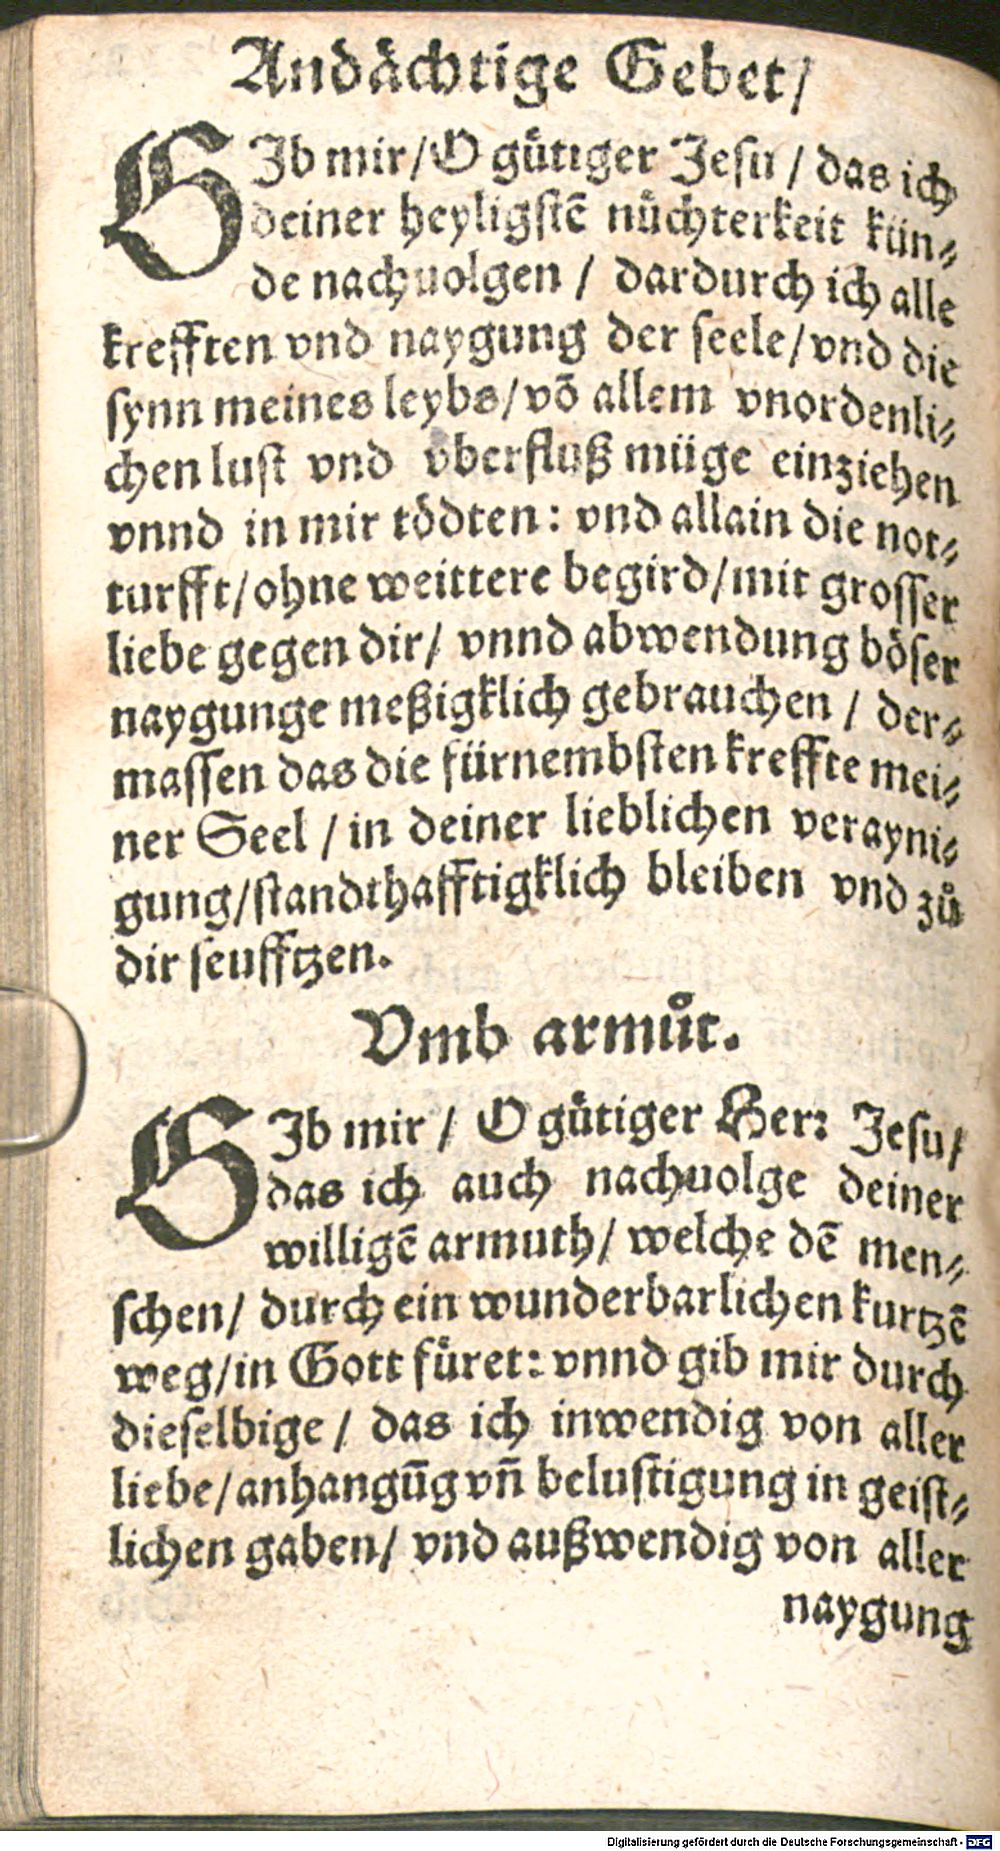 Andächtige Gebet/
GIb mir/ O gütiger Jesu / das ich
deiner heyligstē nüchterkeit kün⸗
de nachuolgen / dardurch ich alle
krefften vnd naygung der seele/vnd die
synn meines leybs/vō allem vnordenli⸗
chen lust vnd vberfluß müge einziehen
vnnd in mir tödten: vnd allain die not⸗
turfft/ohne weittere begird/mit grosser
liebe gegen dir/ vnnd abwendung böser
naygunge meßigklich gebrauchen / der⸗
massen das die fürnembsten kreffte mei⸗
ner Seel / in deiner lieblichen verayni⸗
gung/standthafftigklich bleiben vnd zů
dir seufftzen.
Vmb armůt.
GIb mir / O gütiger Herr Jesu/
das ich auch nachuolge deiner
willigē armuth/ welche dē men⸗
schen/ durch ein wunderbarlichen kurtzē
weg/in Gott füret: vnnd gib mir durch
dieselbige / das ich inwendig von aller
liebe/anhangūg vn̄ belustigung in geist⸗
lichen gaben/ vnd außwendig von aller
naygung
Digitalisierung gefördert durch die Deutsche Forschungsgemeinschaft - DFG